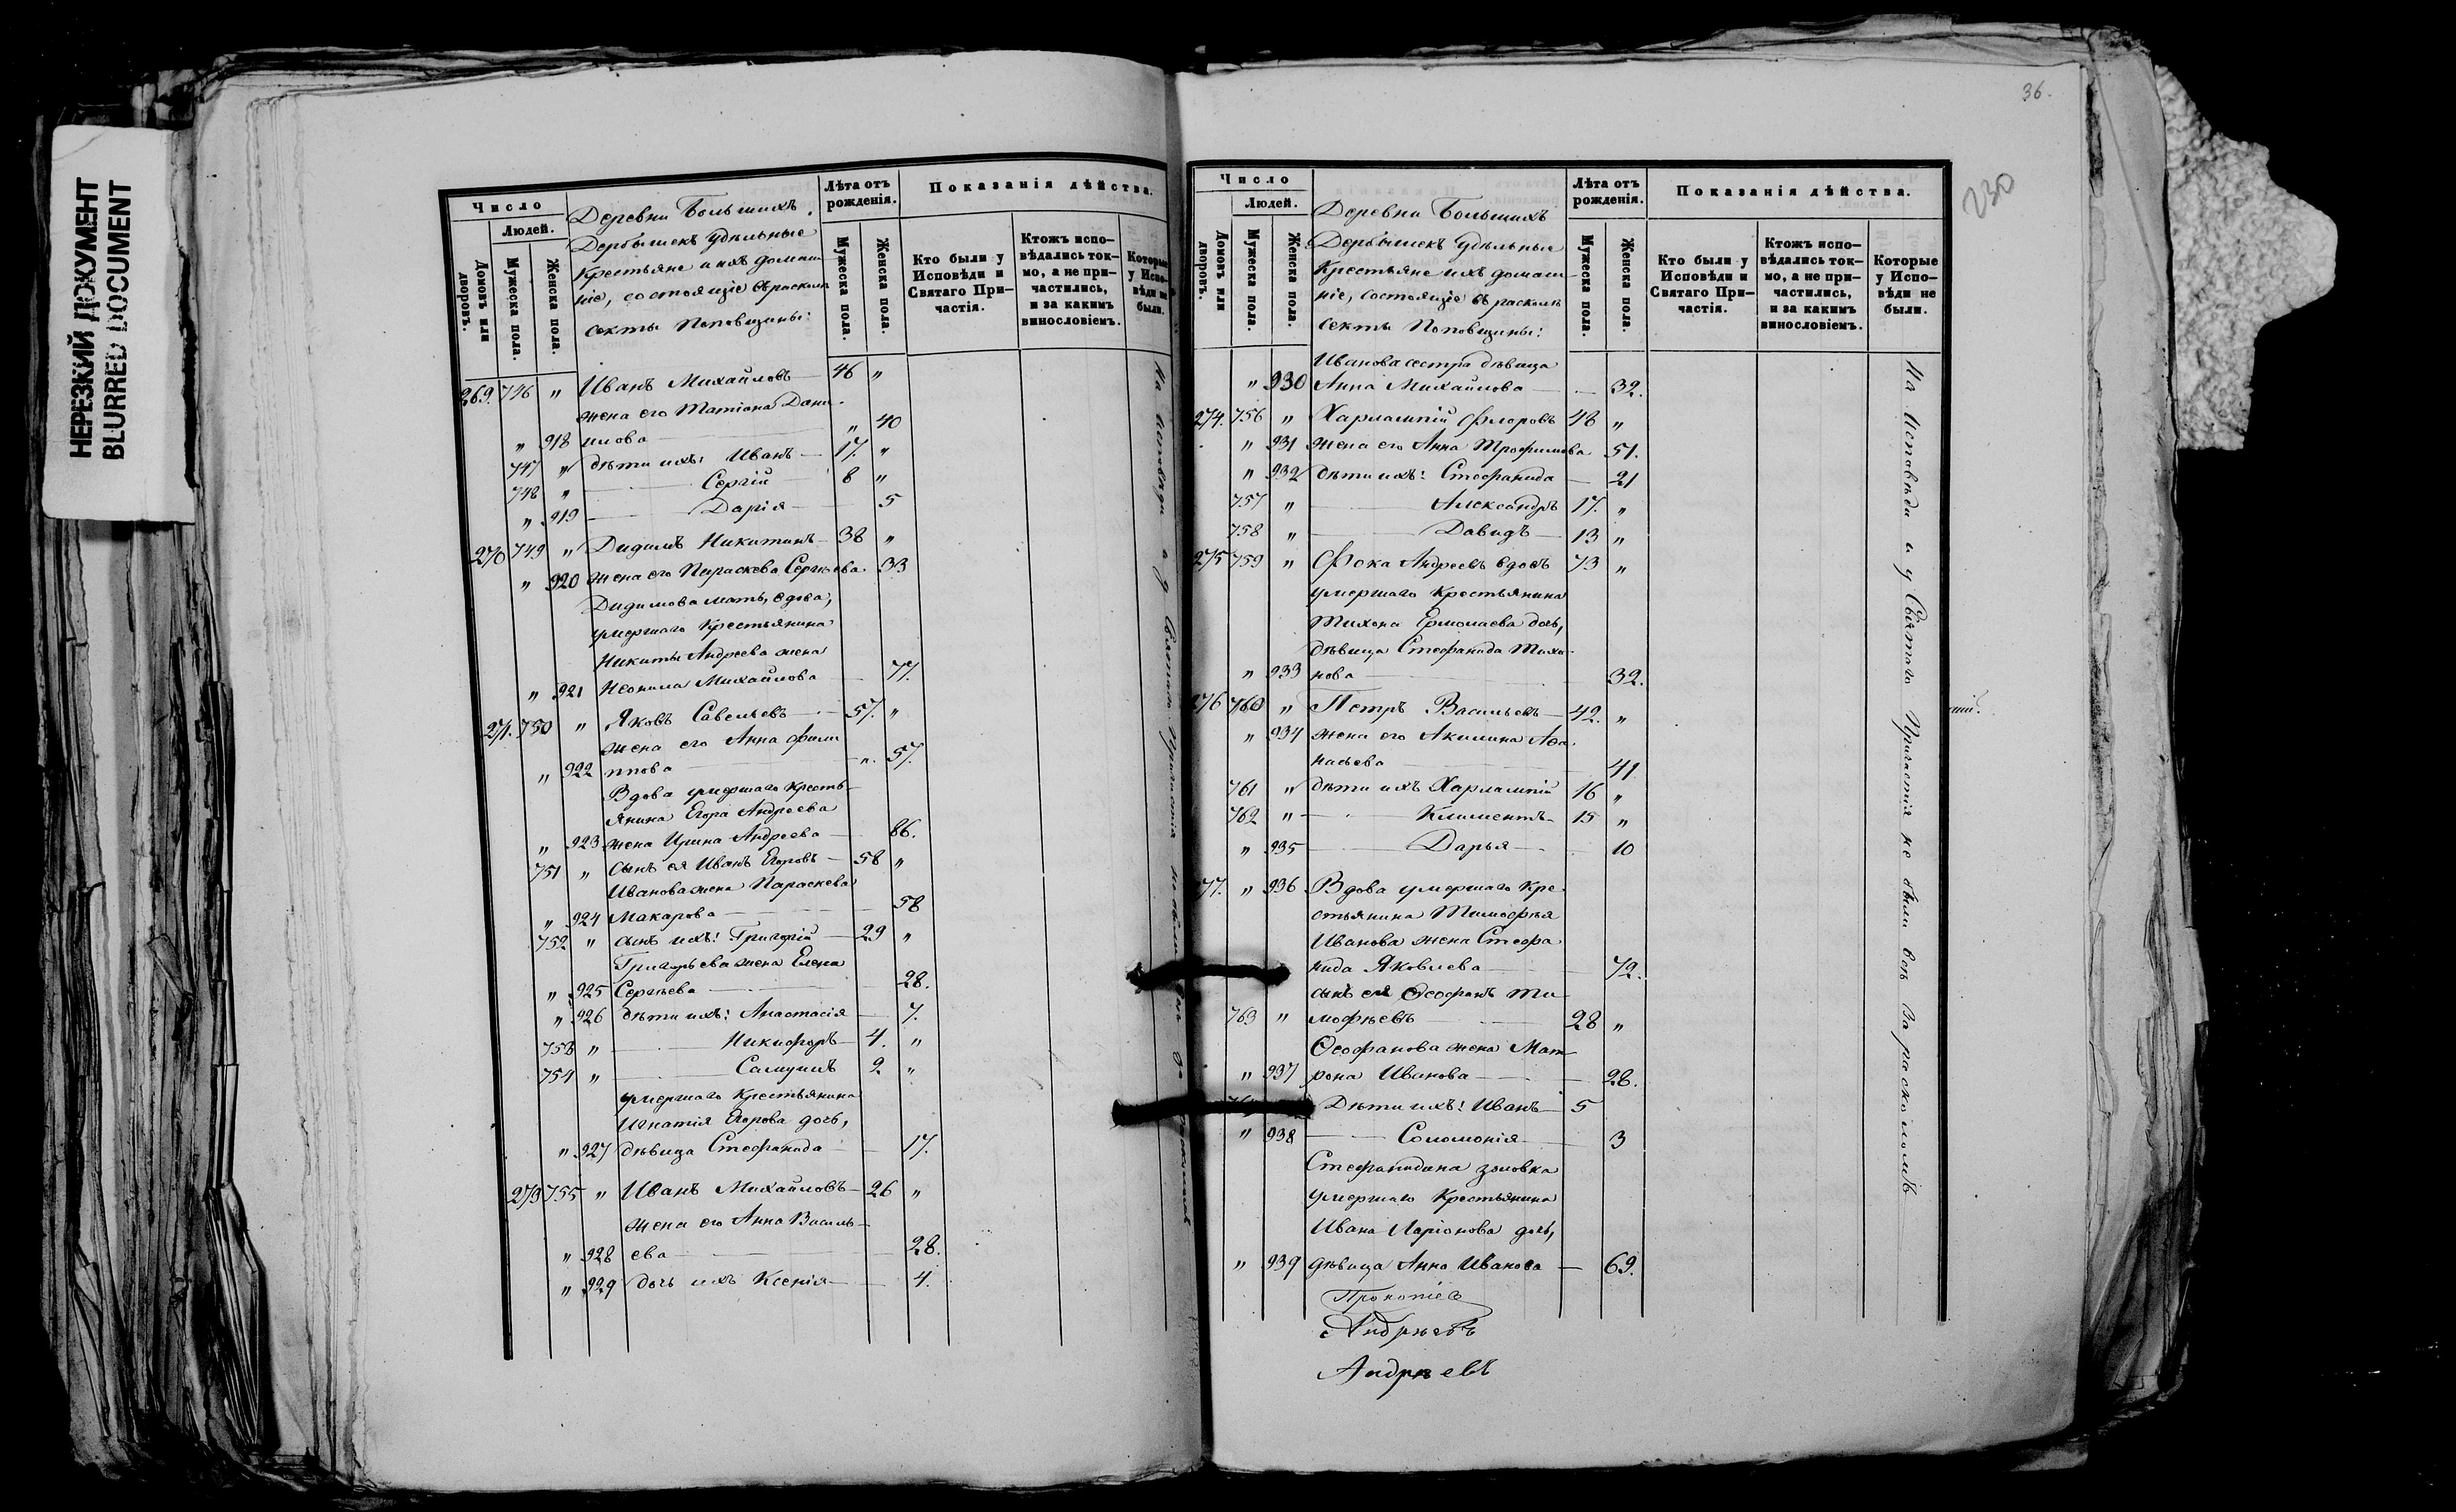 НЕРЕЗКИЙ ДОКУМЕНТ
BLURRED DOCUMENT
Число
Людей.
Домовъ или дворовъ.
Мужеска пола.
Женска пола.
Деревни Большихъ
Дербышекъ удѣльные
крестьяне и ихъ домаш
ніе, состоящіе въ расколѣ
секты Поповщины:
Лѣта отъ рожденія.
Мужеска пола.
Женска пола.
Показанія дѣйства.
Кто были у Исповѣди и Святаго При-
частія.
Ктожъ испо-
вѣдались ток-
мо, а не при-
частились,
и за какимъ
винословіемъ.
Которые
у Испо-
вѣди не
были.
269. 746 " Иванъ Михайловъ 46 "
жена его Татіана Дани
" 918 илова " 40
747 " дѣти ихъ: Иванъ 17. "
748 " Сергій 8 "
" 919 Дарія 5
270 749 " Дидимъ Никитинъ 38 "
" 920 жена его Параскева Сергѣева 33
Дидимова мать, вдова,
умершаго Крестьянина
Никиты Андреева жена
" 921 Неонила Михайлова 77.
271. 750 " Яковъ Савельевъ 57. "
жена его Анна Фили
" 922 ппова ". 57.
Вдова умершаго Кресть-
янина Егора Андреева
" 923 жена Ирина Андреева 86.
751 " сынъ ея Иванъ Егоровъ 58 "
Иванова жена Параскева
" 924 Макарова 58
752 " сынъ ихъ: Григорій 29 "
Григорьева жена Елена
" 925 Сергѣева 28.
" 926 дѣти ихъ: Анастасія 7.
753 " Никифоръ 4. "
754 " Самуилъ 2 "
умершаго Крестьянина
Игнатія Егорова дочь,
" 927 дѣвица Стефанида 17.
273 755 " Иванъ Михайловъ 26 "
жена его Анна Василь-
" 928 ева 28.
" 929 дочь ихъ Ксенія 4.
36.
230
Число
Людей.
Домовъ или дворовъ.
Мужеска пола.
Женска пола.
Деревни Большихъ
Дербышекъ удѣльные
Крестьяне ихъ домаш-
ніе, состоящіе въ расколѣ
секты Поповщины:
Лѣта отъ рожденія.
Мужеска пола.
Женска пола.
Показанія дѣйства.
Кто были у
Исповѣди и
Святаго При-
частія.
Ктожъ испо-
вѣдались ток-
мо, а не при-
частились,
и за какимъ
винословіемъ.
Которые
у Испо-
вѣди не
были.
Иванова сестра дѣвица
" 930 Анна Михайлова 32.
274. 756 " Харлампій Флоровъ 48 "
" 931 жена его Анна Трофимова 51.
" 932 дѣти ихъ: Стефанида 21
757 " Александръ 17. "
758 " Давидъ 13 "
275 759 " Фока Андреевъ вдовъ 73 "
умершаго Крестьянина
Тихона Ермолаева дочь,
дѣвица Стефанида Тихо
" 933 нова 32.
276 760 " Петръ Васильевъ 42. "
" 934 жена его Акилина Аѳа
насьева 41
761 " дѣти ихъ Харлампій 16 "
762 " Климентъ 15 "
" 935 Дарья 10
77. " 936 Вдова умершаго Кре
стьянина Тимофея
Иванова жена Стефа
нида Яковлева 72.
сынъ ея Ѳеофанъ Ти
763 " мофѣевъ 28 "
Ѳеофанова жена Мат
" 937 рона Иванова 28.
Дѣти ихъ: Иванъ 5
" 938 Соломонія 3
Стефанидина золовка
умершаго Крестьянина
Ивана Ларіонова дочь,
" 939 дѣвица Анна Иванова 69.
На Исповѣди и у Святаго Причастія не были всѣ за расколомъ
Андрѣевъ
Андрѣевъ